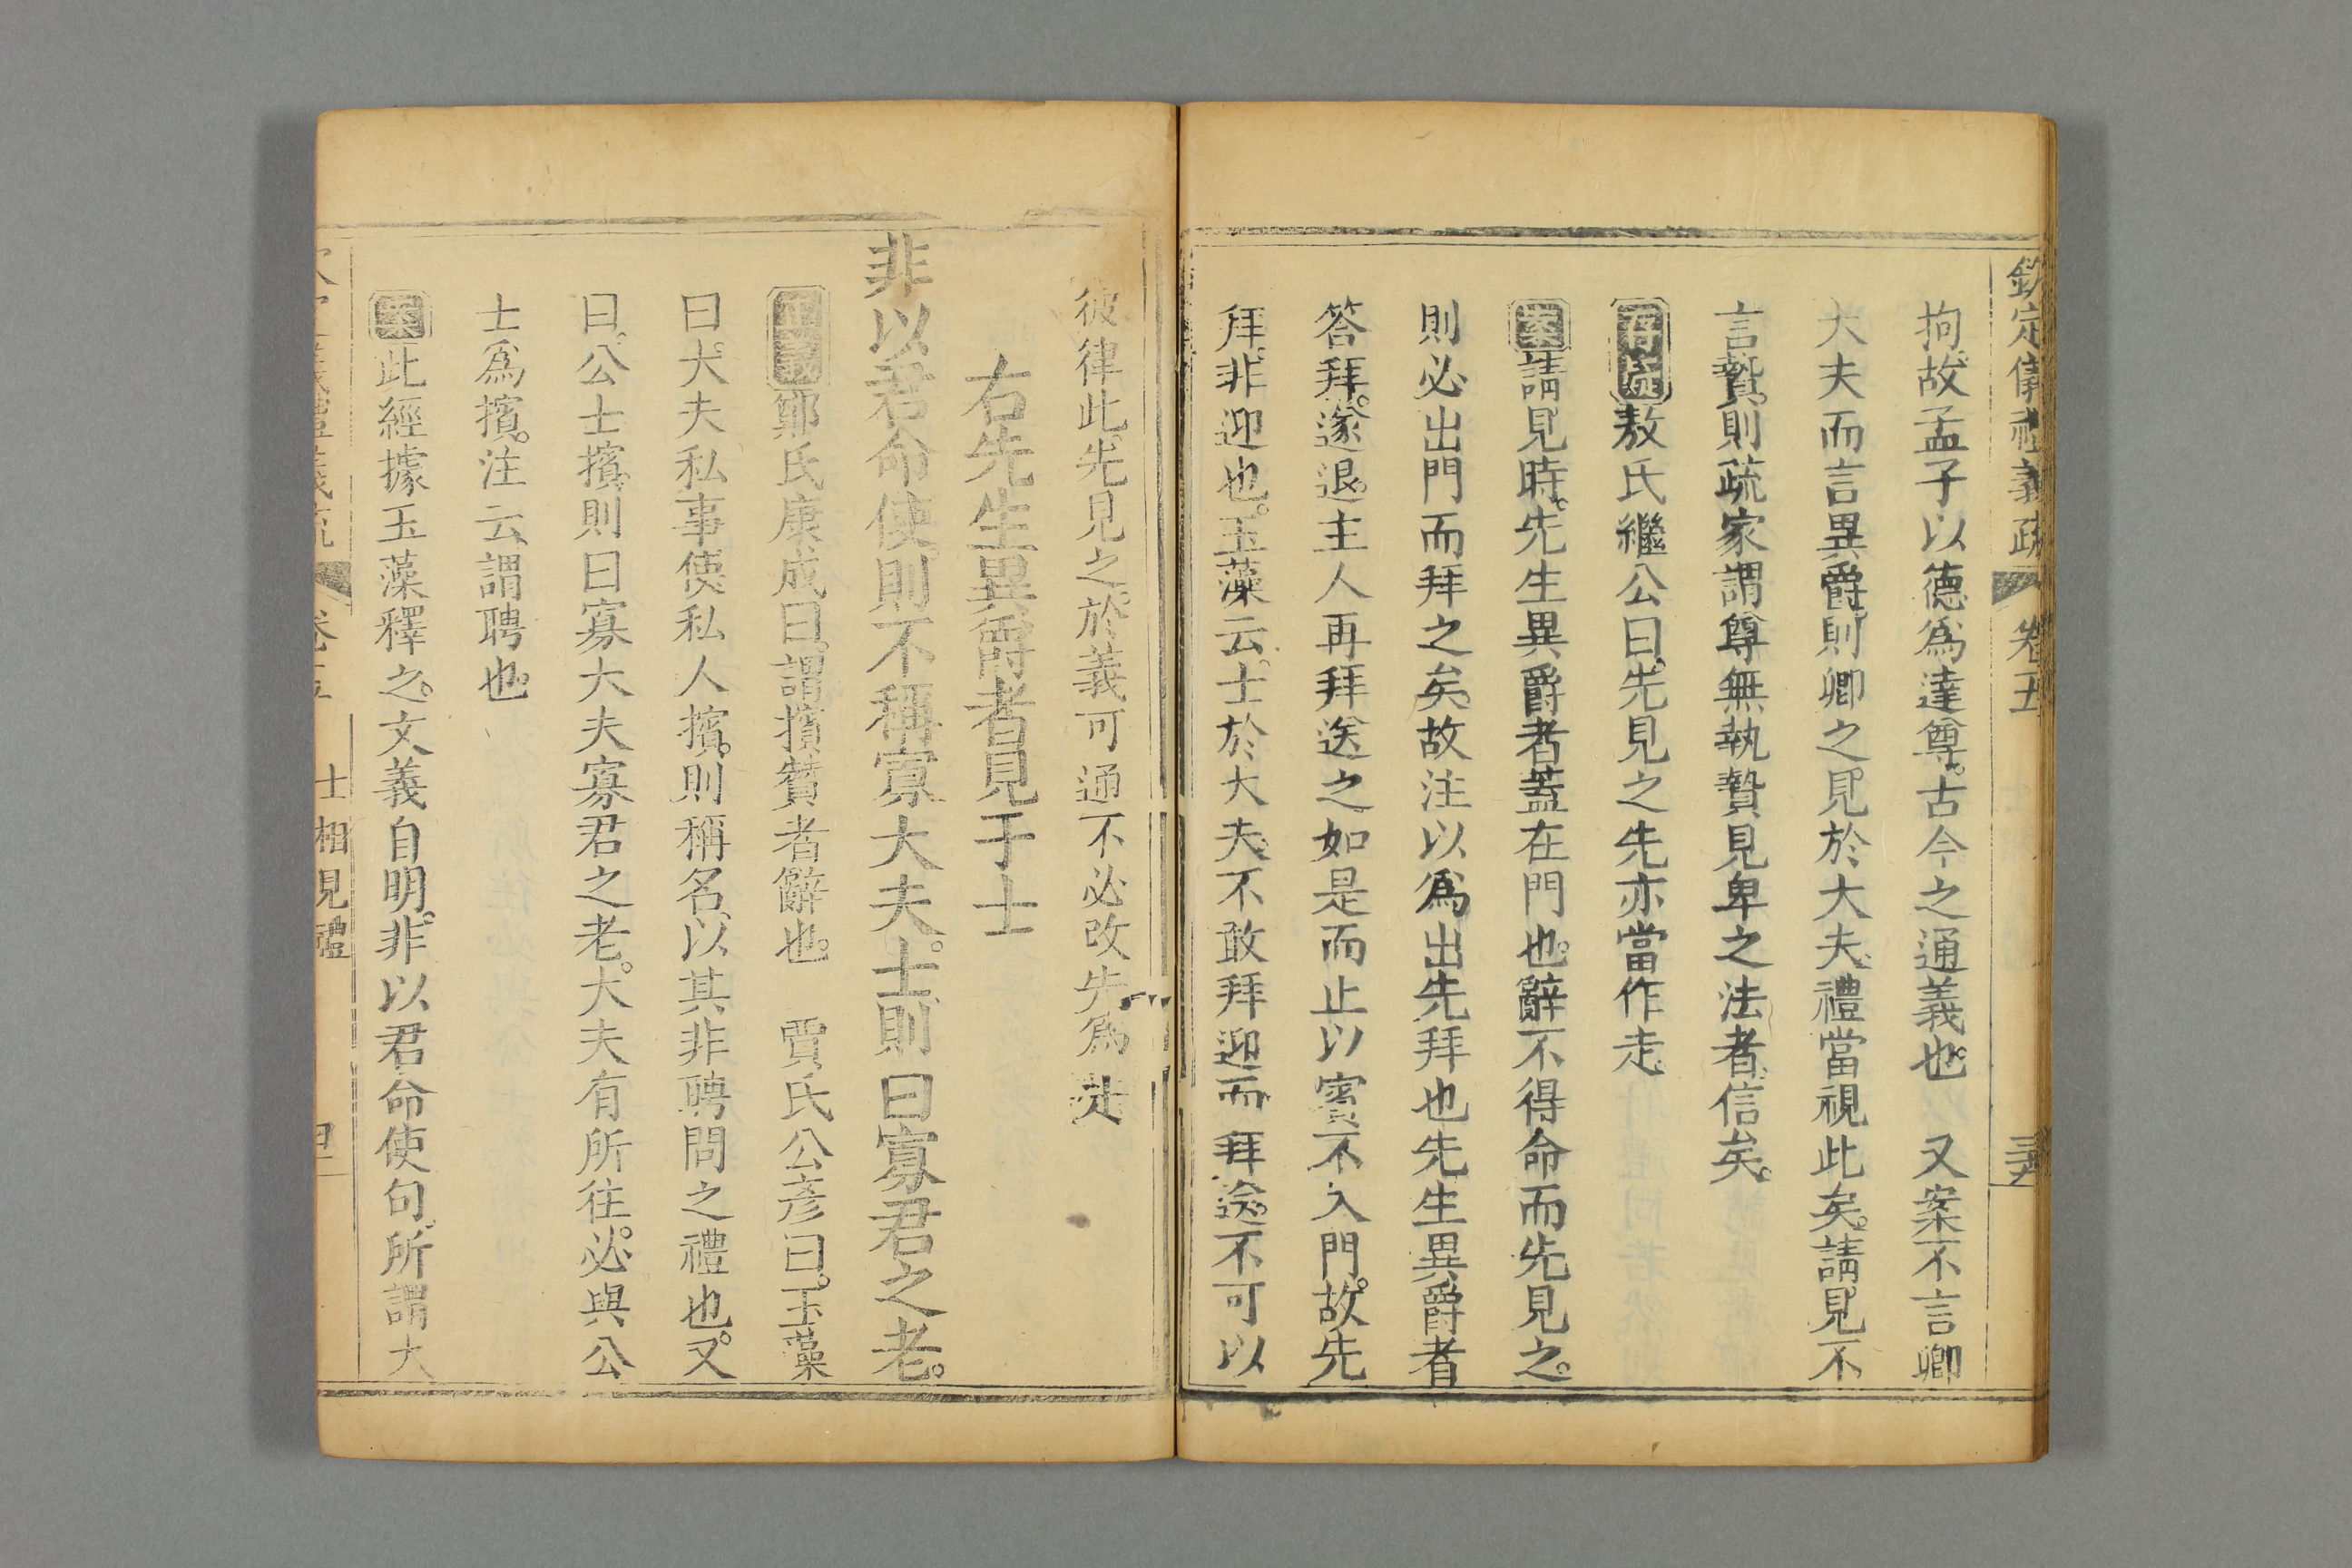 欽定儀禮義疏 卷五 三六
拘故孟子以德爲達尊。古今之通義也。 又案不言卿
大夫而言異爵則卿之見於大夫禮當視此矣。請見不
言贄。則疏家謂尊無執贄見卑之法者信矣。
存疑敖氏繼公曰。先見之先亦當作走
案請見時。先生異爵者蓋在門也。辭不得命而先見之。
則必出門而拜之矣。故注以爲出先拜也先生異爵者
答拜。遂退。主人再拜送之如是而止以賓不入門。故先
拜。非迎也。玉藻云。士於大夫。不敢拜迎而拜送。不可以
彼律此。先見之。於義可通不必改先爲走
右先生異爵者見于士
非以君命使。則不稱寡大夫。士則曰寡君之老。
正義鄭氏康成曰。謂擯贊者辭也。 賈氏公彥曰。玉藻
曰。大夫私事使私人擯。則稱名。以其非聘問之禮也。又
曰。公士擯則曰寡大夫寡君之老。大夫有所往。必與公
士爲擯。注云謂聘也。
案此經據玉藻釋之。文義自明。非以君命使句。所謂大
士相見禮